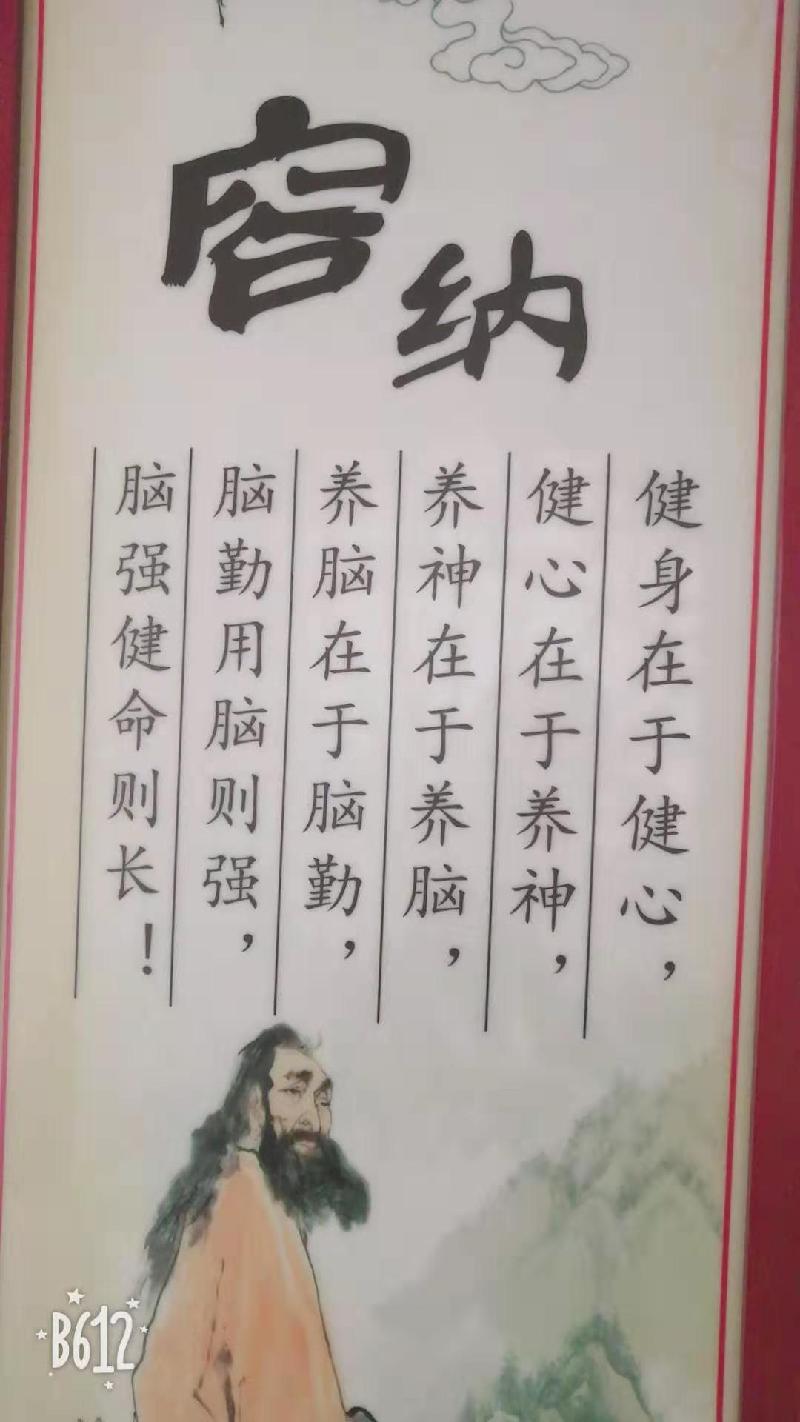 容纳
健身在于健心，
健心在于养神，
养神在于养脑，
养脑在于脑勤，
脑勤用脑则强，
脑强健命则长！
B612